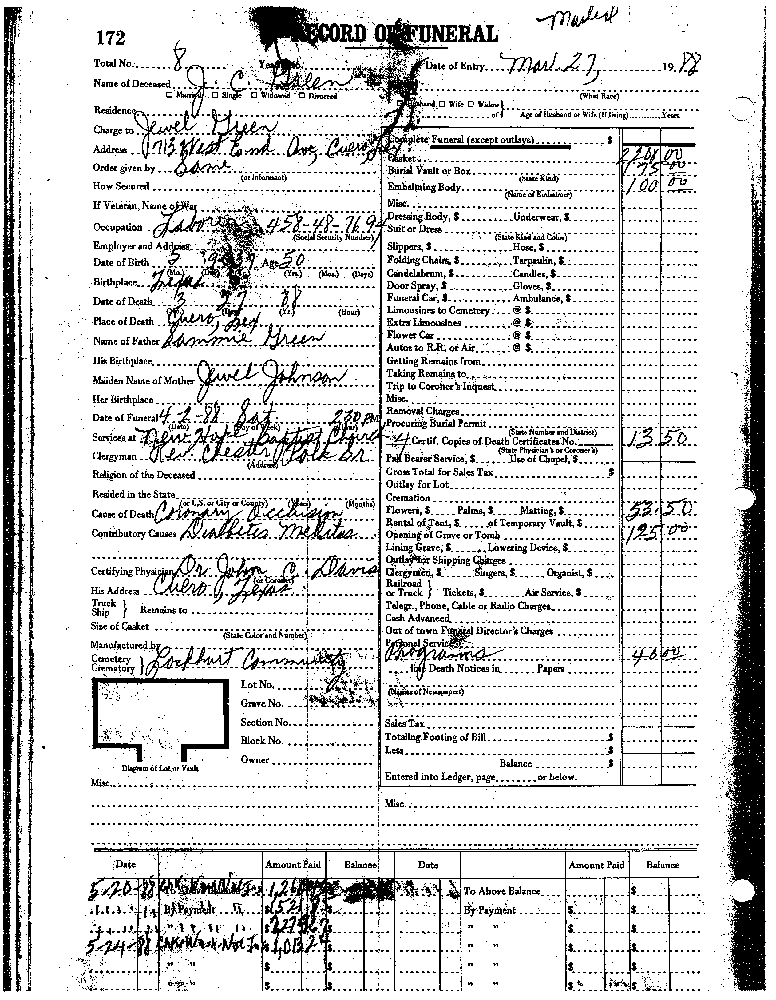 Marked
172 RECORD OF FUNERAL
Total No. 8 Date of Entry Mar 27, 1988
Name of Deceased J. C. Green
Married Single Widowed Divorced (What Race)
Residence Husband Wife Widow
of Age of Husband or Wife (if living) Years
Charge to Jewel Green
Address 1713 West End Ave, Cuero
Order given by Same
(or Informant)
How Secured
If Veteran, Name of War
Occupation Labor 458-48-7694
(Social Security Number)
Employer and Address
Date of Birth 5 Age 50
(Mo.) (Yrs.) (Mos.) (Days)
Birthplace Texas
Date of Death 3 27 88
(Hour)
Place of Death Cuero, Tex
Name of Father Sammie Green
His Birthplace
Maiden Name of Mother Jewel Johnson
Her Birthplace
Date of Funeral 4-2-88 Sat 2:30 PM
Services at New Hope Baptist Church
Clergyman Rev. Chester Polk Sr.
(Address)
Religion of the Deceased
Resided in the State
(or U.S. or City or County) (Years) (Months)
Cause of Death Colonary Occlusion
Contributory Causes Diabetes Mellitus
Certifying Physician Dr. John C. Davis
(or Coroner)
His Address Cuero, Texas
Truck Ship } Remains to
Size of Casket
(State Color and Number)
Manufactured by
Cemetery Crematory } Lockhart Community
Lot No.
Grave No.
Section No.
Block No.
Owner
Diagram of Lot or Vault
Misc.
Complete Funeral (except outlays) $
Casket 2268 00
Burial Vault or Box 175 00
(State Kind)
Embalming Body 100 00
(Name of Embalmer)
Misc.
Dressing Body, $ Underwear, $
Suit or Dress
(State Kind and Color)
Slippers, $ Hose, $
Folding Chairs, $ Tarpaulin, $
Candelabrum, $ Candles, $
Door Spray, $ Gloves, $
Funeral Car, $ Ambulance, $
Limousines to Cemetery @ $
Extra Limousines @ $
Flower Car @ $
Autos to R.R. or Air @ $
Getting Remains from
Taking Remains to
Trip to Coroner's Inquest
Misc.
Removal Charges
Procuring Burial Permit
(State Number and District)
4 Certif. Copies of Death Certificates No. 13 50
(State Physician's or Coroner's)
Pall Bearer Service, $ Use of Chapel, $
Gross Total for Sales Tax $
Outlay for Lot
Cremation
Flowers, $ Palms, $ Matting, $ 53 50
Rental of Tent, $ of Temporary Vault, $
Opening of Grave or Tomb 125 00
Lining Grave, $ Lowering Device, $
Outlay for Shipping Charges
Clergymen, $ Singers, $ Organist, $
Railroad or Truck } Tickets, $ Air Service, $
Telegr., Phone, Cable or Radio Charges
Cash Advanced
Out of town Funeral Director's Charges
Personal Service
Programs 40 00
Death Notices in Papers
(Names of Newspapers)
Sales Tax
Totaling Footing of Bill $
Less $
Balance $
Entered into Ledger, page or below.
Misc.
Date Amount Paid Balance Date Amount Paid Balance
5-20-88 To Above Balance $
By Payment $ By Payment $
" " $
5-24-88 " " $
" " $ " " $
" " $ " " $